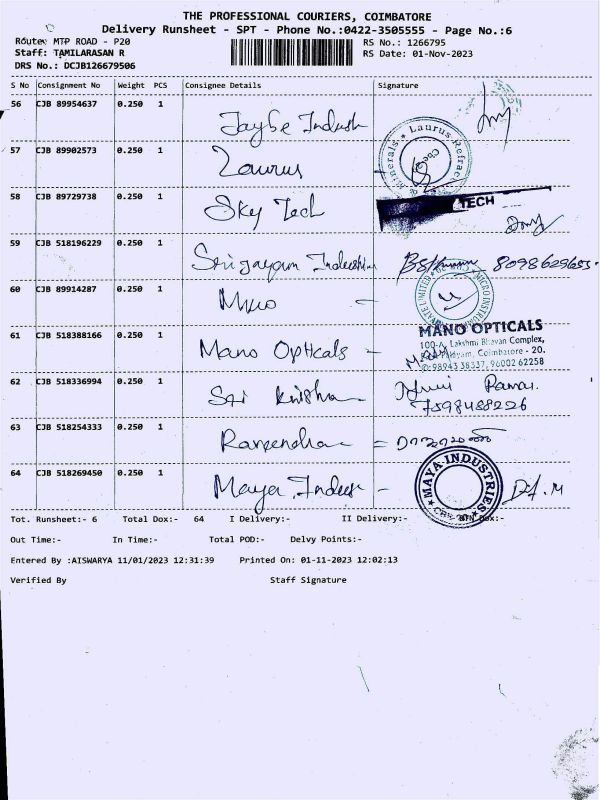 THE PROFESSIONAL COURIERS, COIMBATORE
Delivery Runsheet - SPT - Phone No.:0422-3505555 - Page No.:6
Route: MTP ROAD - P20
RS No.: 1266795
Staff: TAMILARASAN R
RS Date: 01-Nov-2023
DRS No.: DCJB126679506
S No Consignment No Weight PCS Consignee Details Signature
56 CJB 89954637 0.250 1
57 CJB 89902573 0.250 1 Laurus
Minerals * Laurus Refrac
CBE
58 CJB 89729738 0.250 1 Sky Tech
TECH
59 CJB 518196229 0.250 1 8098629653.
60 CJB 89914287 0.250 1
61 CJB 518388166 0.250 1 Mano Opticals -
MANO OPTICALS
100-A, Lakshmi Bhavan Complex,
Coimbatore - 20.
98943 38337, 96002 62258
62 CJB 518336994 0.250 1 Sri Krishna
7598488226
63 CJB 518254333 0.250 1
64 CJB 518269450 0.250 1 Maya
MAYA INDUSTRIES
Tot. Runsheet:- 6 Total Dox:- 64 I Delivery:- II Delivery:-
Out Time:- In Time:- Total POD:- Delvy Points:-
Entered By :AISWARYA 11/01/2023 12:31:39 Printed On: 01-11-2023 12:02:13
Verified By Staff Signature